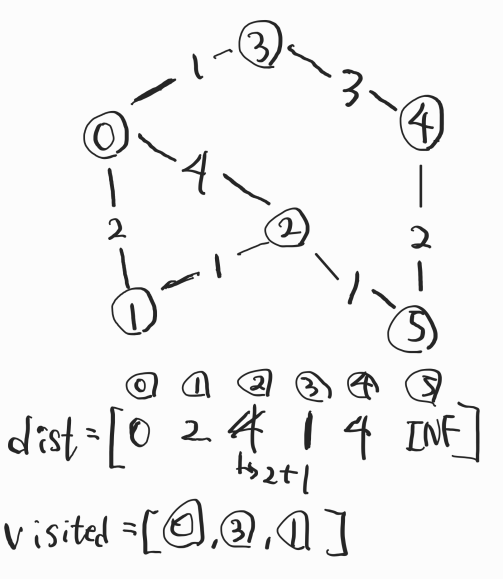 3
1
3
0
4
4
2
2
2
1
1
1
5
0 1 2 3 4 5
dist = [0 2 4 1 4 INF]
↳ 2+1
visited = [0, 3, 1]